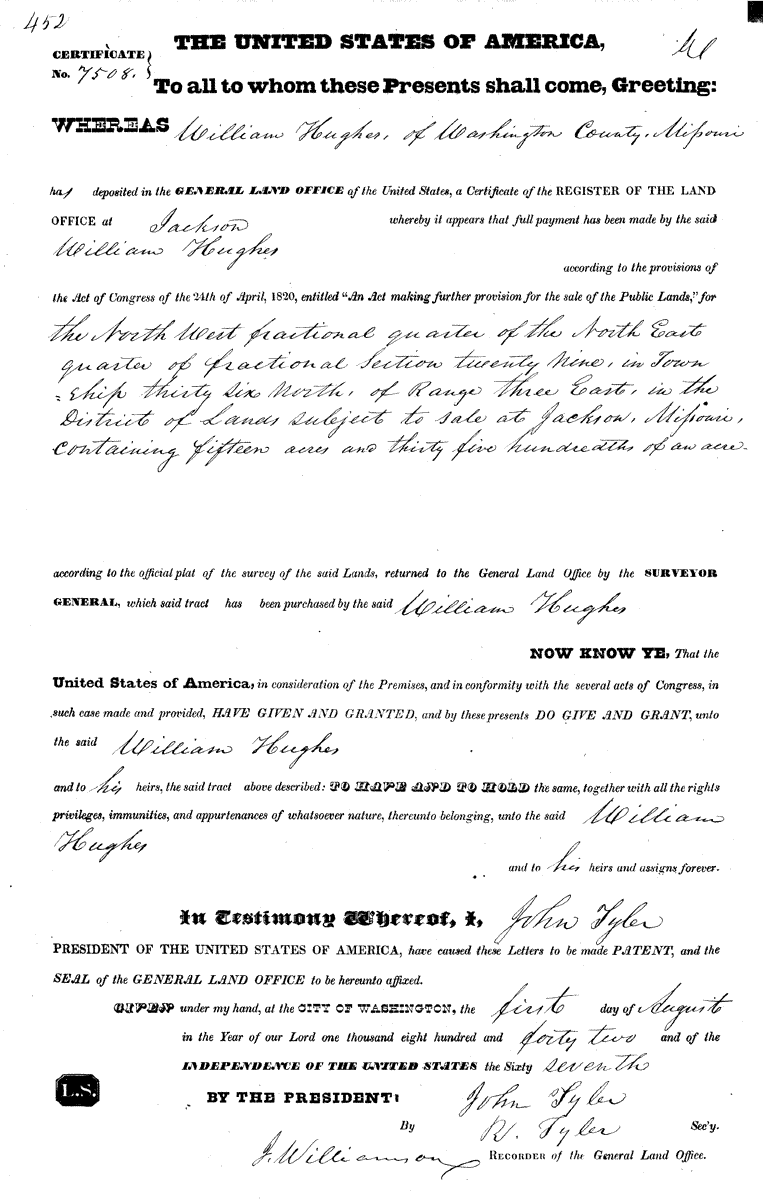 452
CERTIFICATE
No. 7508.
THE UNITED STATES OF AMERICA,
To all to whom these Presents shall come, Greeting:
WHEREAS William Hughes, of Washington County, Missouri
has deposited in the GENERAL LAND OFFICE of the United States, a Certificate of the REGISTER OF THE LAND
OFFICE at Jackson whereby it appears that full payment has been made by the said
William Hughes
according to the provisions of
the Act of Congress of the 24th of April, 1820, entitled "An Act making further provision for the sale of the Public Lands," for
the North West fractional quarter of the North East
quarter of fractional Section twenty Nine, in Town
=ship thirty six North, of Range three East, in the
District of Lands subject to sale at Jackson, Missouri,
containing fifteen acres and thirty five hundredths of an acre
according to the official plat of the survey of the said Lands, returned to the General Land Office by the SURVEYOR
GENERAL, which said tract has been purchased by the said William Hughes
NOW KNOW YE, That the
United States of America, in consideration of the Premises, and in conformity with the several acts of Congress, in
such case made and provided, HAVE GIVEN AND GRANTED, and by these presents DO GIVE AND GRANT, unto
the said William Hughes
and to his heirs, the said tract above described: TO HAVE AND TO HOLD the same, together with all the rights
privileges, immunities, and appurtenances of whatsoever nature, thereunto belonging, unto the said William
Hughes
and to his heirs and assigns forever.
In Testimony Whereof, I, John Tyler
PRESIDENT OF THE UNITED STATES OF AMERICA, have caused these Letters to be made PATENT, and the
SEAL of the GENERAL LAND OFFICE to be hereunto affixed.
GIVEN under my hand, at the CITY OF WASHINGTON, the first day of August
in the Year of our Lord one thousand eight hundred and forty two and of the
INDEPENDENCE OF THE UNITED STATES the Sixty seventh
L.S.
BY THE PRESIDENT: John Tyler
By R. Tyler Sec'y.
J. Williamson RECORDER of the General Land Office.